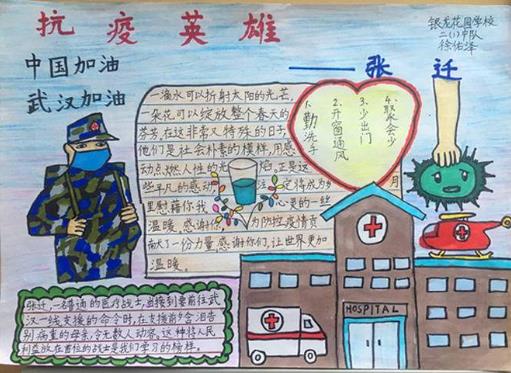 抗疫英雄
——张迁
银龙花园学校
二(1)中队
徐佑泽
中国加油
武汉加油
一滴水可以折射太阳的光芒,
一朵花可以绽放整个春天的
芬芳,在这非常又特殊的日子,
他们是社会朴素的模样,用感
动点燃人性的光 正是这
些平凡的感动 注定将成为岁
里慰藉你我 心灵的一丝
温暖。感谢你 为防控疫情贡
献了一份力量 感谢你们,让世界更加
温暖。
1.勤洗手
2.开窗通风
3.少出门
4.聚会少
月
HOSPITAL
张迁,一名普通的医疗战士,当接到要前往武
汉一线支援的命令时,在支援前夕含泪告
别病重的母亲,令无数人动容。这种将人民
利益放在首位的战士是我们学习的榜样。